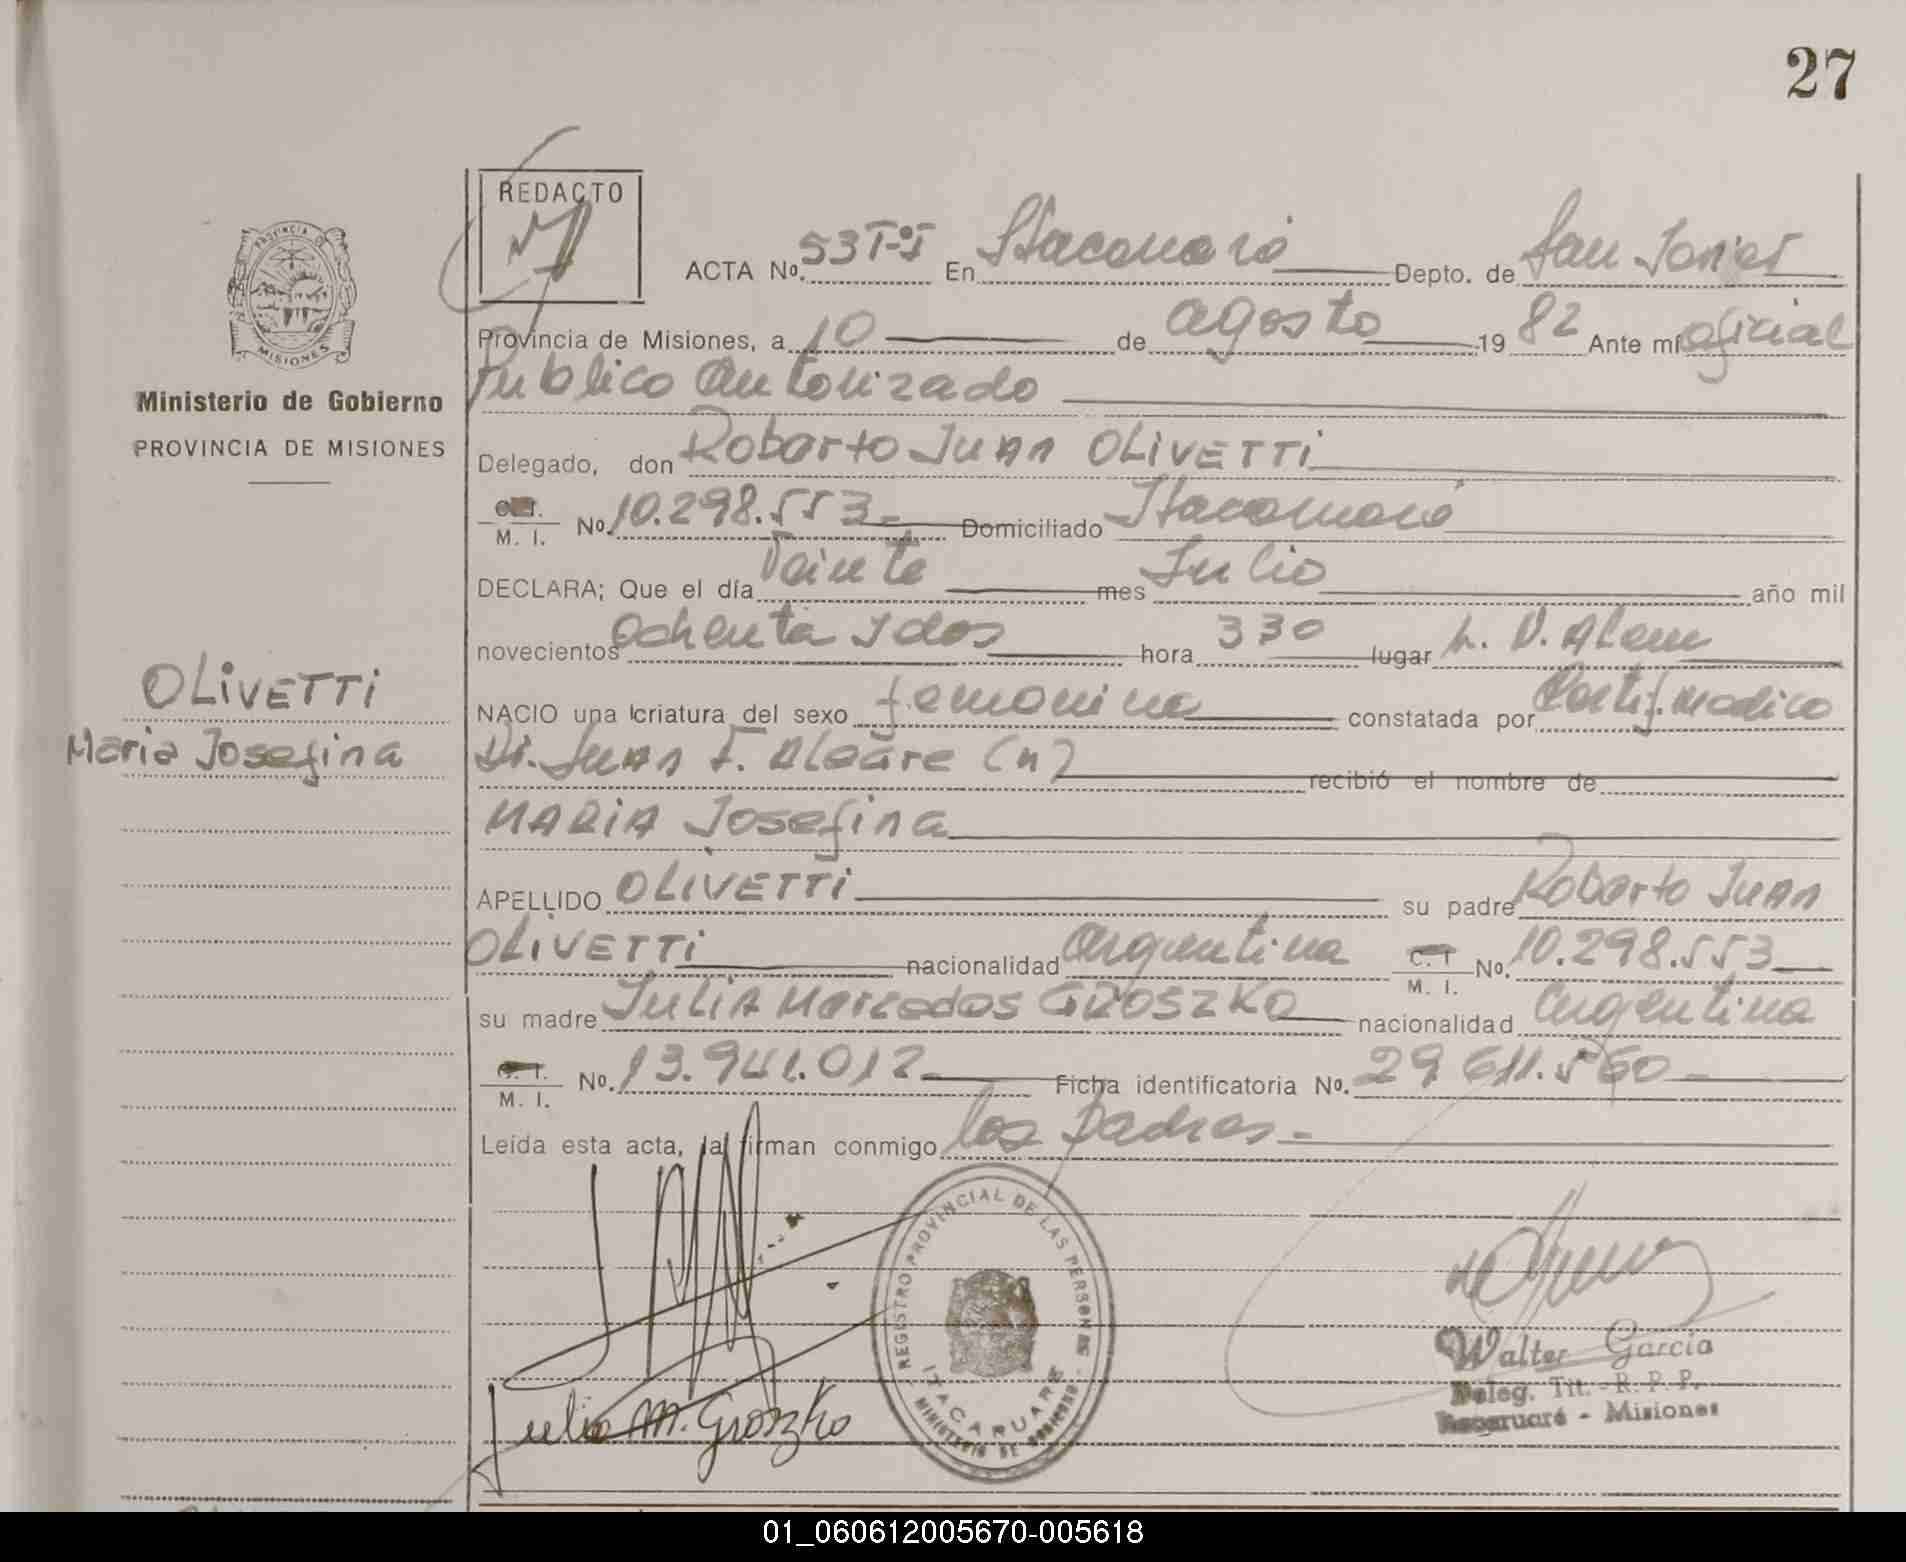 27
REDACTO
ACTA No. 53 T-I En Itacaruaré Depto. de San Javier
Provincia de Misiones, a 10 de agosto 19 82 Ante mí oficial
Publico autorizado
Delegado, don Roberto Juan OLIVETTI
M. I. No. 10.298.553 Domiciliado Itacaruaré
DECLARA; Que el día Veinte mes Julio año mil
novecientos ochenta y dos hora 330 lugar L. N. Alem
NACIO una criatura del sexo femenino constatada por Certif. medico
Dr. Juan F. Alegre (n) recibió el nombre de
MARIA Josefina
APELLIDO OLIVETTI su padre Roberto Juan
OLIVETTI nacionalidad argentina C. I. M. I. No. 10.298.553
su madre Julia Mercedes GROSZKO nacionalidad argentina
C. I. M. I. No. 13.941.012 Ficha identificatoria No. 29.611.560
Leída esta acta, la firman conmigo los padres.
PROVINCIA DE
MISIONES
Ministerio de Gobierno
PROVINCIA DE MISIONES
OLIVETTI
Maria Josefina
Julia M. Groszko
REGISTRO PROVINCIAL DE LAS PERSONAS
ITACARUARE
MINISTERIO DE GOBIERNO
Walter García
Deleg. Tit. - R. P. P.
Itacaruaré - Misiones
01_060612005670-005618